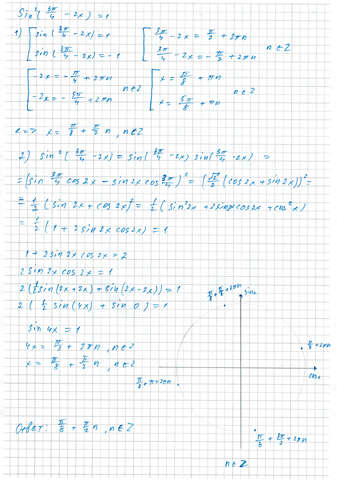 Sin²(3π/4 - 2x) = 1
1) [ sin(3π/4 - 2x) = 1 [ 3π/4 - 2x = π/2 + 2πn
sin(3π/4 - 2x) = -1 3π/4 - 2x = -π/2 + 2πn n∈Z
[ -2x = -π/4 + 2πn [ x = π/8 + πn
-2x = -5π/4 + 2πn n∈Z x = 5π/8 + πn n∈Z
<=> x = π/8 + π/2 n, n∈Z
2) sin²(3π/4 - 2x) = sin(3π/4 - 2x) sin(3π/4 - 2x) =
= (sin 3π/4 cos2x - sin2x cos 3π/4)² = (√2/2 (cos2x + sin2x))² =
= 1/2 (sin2x + cos2x)² = 1/2 (sin²2x + 2sin2xcos2x + cos²2x)
= 1/2 (1 + 2sin2x cos2x) = 1
1 + 2sin2x cos2x = 2
2sin2x cos2x = 1
2(1/2 sin(2x + 2x) + sin(2x - 2x)) = 1
2(1/2 sin(4x) + sin 0) = 1
sin 4x = 1
4x = π/2 + 2πn, n∈Z
x = π/8 + π/2 n, n∈Z
sin
π/8 + 2πn
cos
π/8 + π + 2πn
Ответ: π/8 + π/2 n, n∈Z
n∈Z